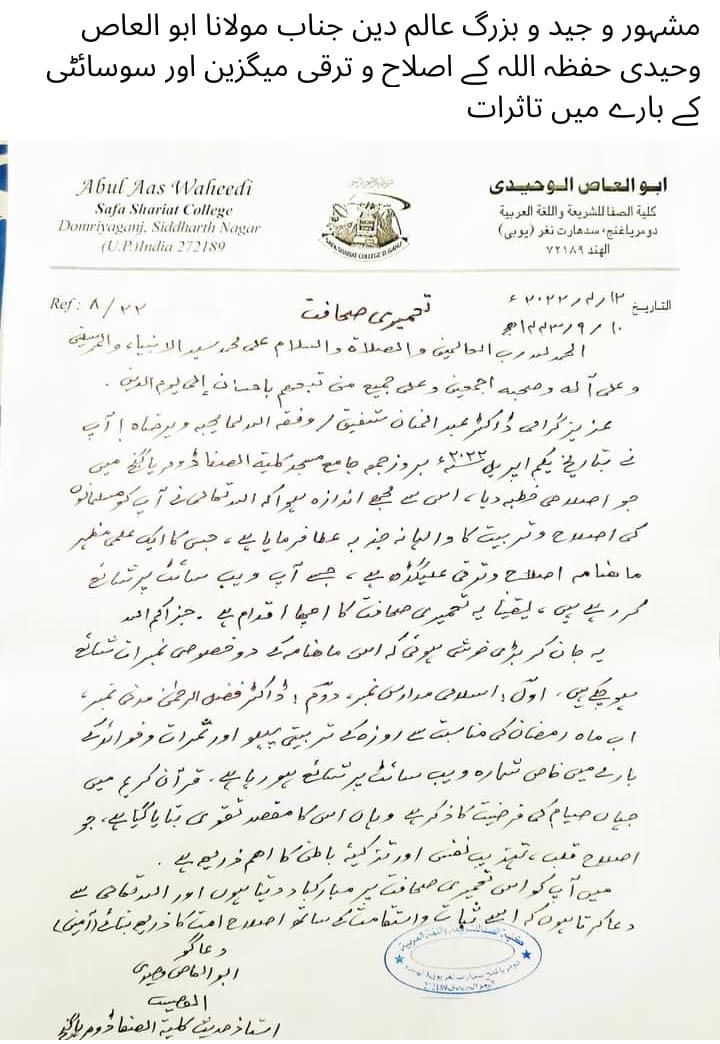 مشہور و جید و بزرگ عالم دین جناب مولانا ابو العاص
وحیدی حفظہ اللہ کے اصلاح و ترقی میگزین اور سوسائٹی
کے بارے میں تاثرات
Abul Aas Waheedi
Safa Shariat College
Domriyaganj, Siddharth Nagar
(U.P.)India 272189
ابو العاص الوحيدى
كلية الصفا للشريعة واللغة العربية
دومرياغنج، سدهارت نغر (يوبى)
الهند ٧٢١٨٩
SAFA SHARIAT COLLEGE
Ref: ٨/٢٢
تعمیری صحافت
التاريخ ١٢/٤/٢٠٢٢ء
١٠/٩/١٤٤٣ھ
الحمد لله رب العالمين والصلاة والسلام على محمد سيد الانبياء والمرسلين
وعلى آله وصحبه اجمعين وعلى جميع من تبعهم بإحسان إلى يوم الدين .
عزیز گرامی ڈاکٹر عبد المنان شفیق / وفقه الله لما يحبه ويرضاه ! آپ
نے بتاریخ یکم اپریل ۲۰۲۲ء بروز جمعہ جامع مسجد کلیۃ الصفا ڈومریا گنج میں
جو اصلاحی خطبہ دیا، اس سے مجھے اندازہ ہوا کہ اللہ تعالیٰ نے آپ کو مسلمانوں
کی اصلاح و تربیت کا والہانہ جذبہ عطا فرمایا ہے، جس کا ایک عملی مظہر
ماہنامہ اصلاح و ترقی علیگڈھ ہے، جسے آپ ویب سائٹ پر شائع
کر رہے ہیں، یقینا یہ تعمیری صحافت کا اچھا اقدام ہے ۔ جزاکم اللہ
یہ جان کر بڑی خوشی ہوئی کہ اس ماہنامہ کے دو خصوصی نمبرات شائع
ہو چکے ہیں، اوّل: اسلامی مدارس نمبر، دوّم: ڈاکٹر فضل الرحمٰن مدنی نمبر،
اب ماہ رمضان کی مناسبت سے روزہ کے تربیتی پہلو اور ثمرات و فوائد کے
بارے میں خاص شمارہ ویب سائٹ پر شائع ہو رہا ہے۔ قرآن کریم میں
جہاں صیام کی فرضیت کا ذکر ہے وہاں اس کا مقصد تقوی بتایا گیا ہے، جو
اصلاح قلب، تہذیب نفس اور تزکیۂ باطن کا اہم ذریعہ ہے ۔
میں آپ کو اس تعمیری صحافت پر مبارکباد دیتا ہوں اور اللہ تعالیٰ سے
دعا کرتا ہوں کہ اسے ثبات و استقامت کے ساتھ اصلاح امت کا ذریعہ بنائے (آمین)
دعا گو
ابو العاص وحیدی
استاذ حدیث کلیۃ الصفا ڈومریا گنج
كلية الصفا للشريعة واللغة العربية